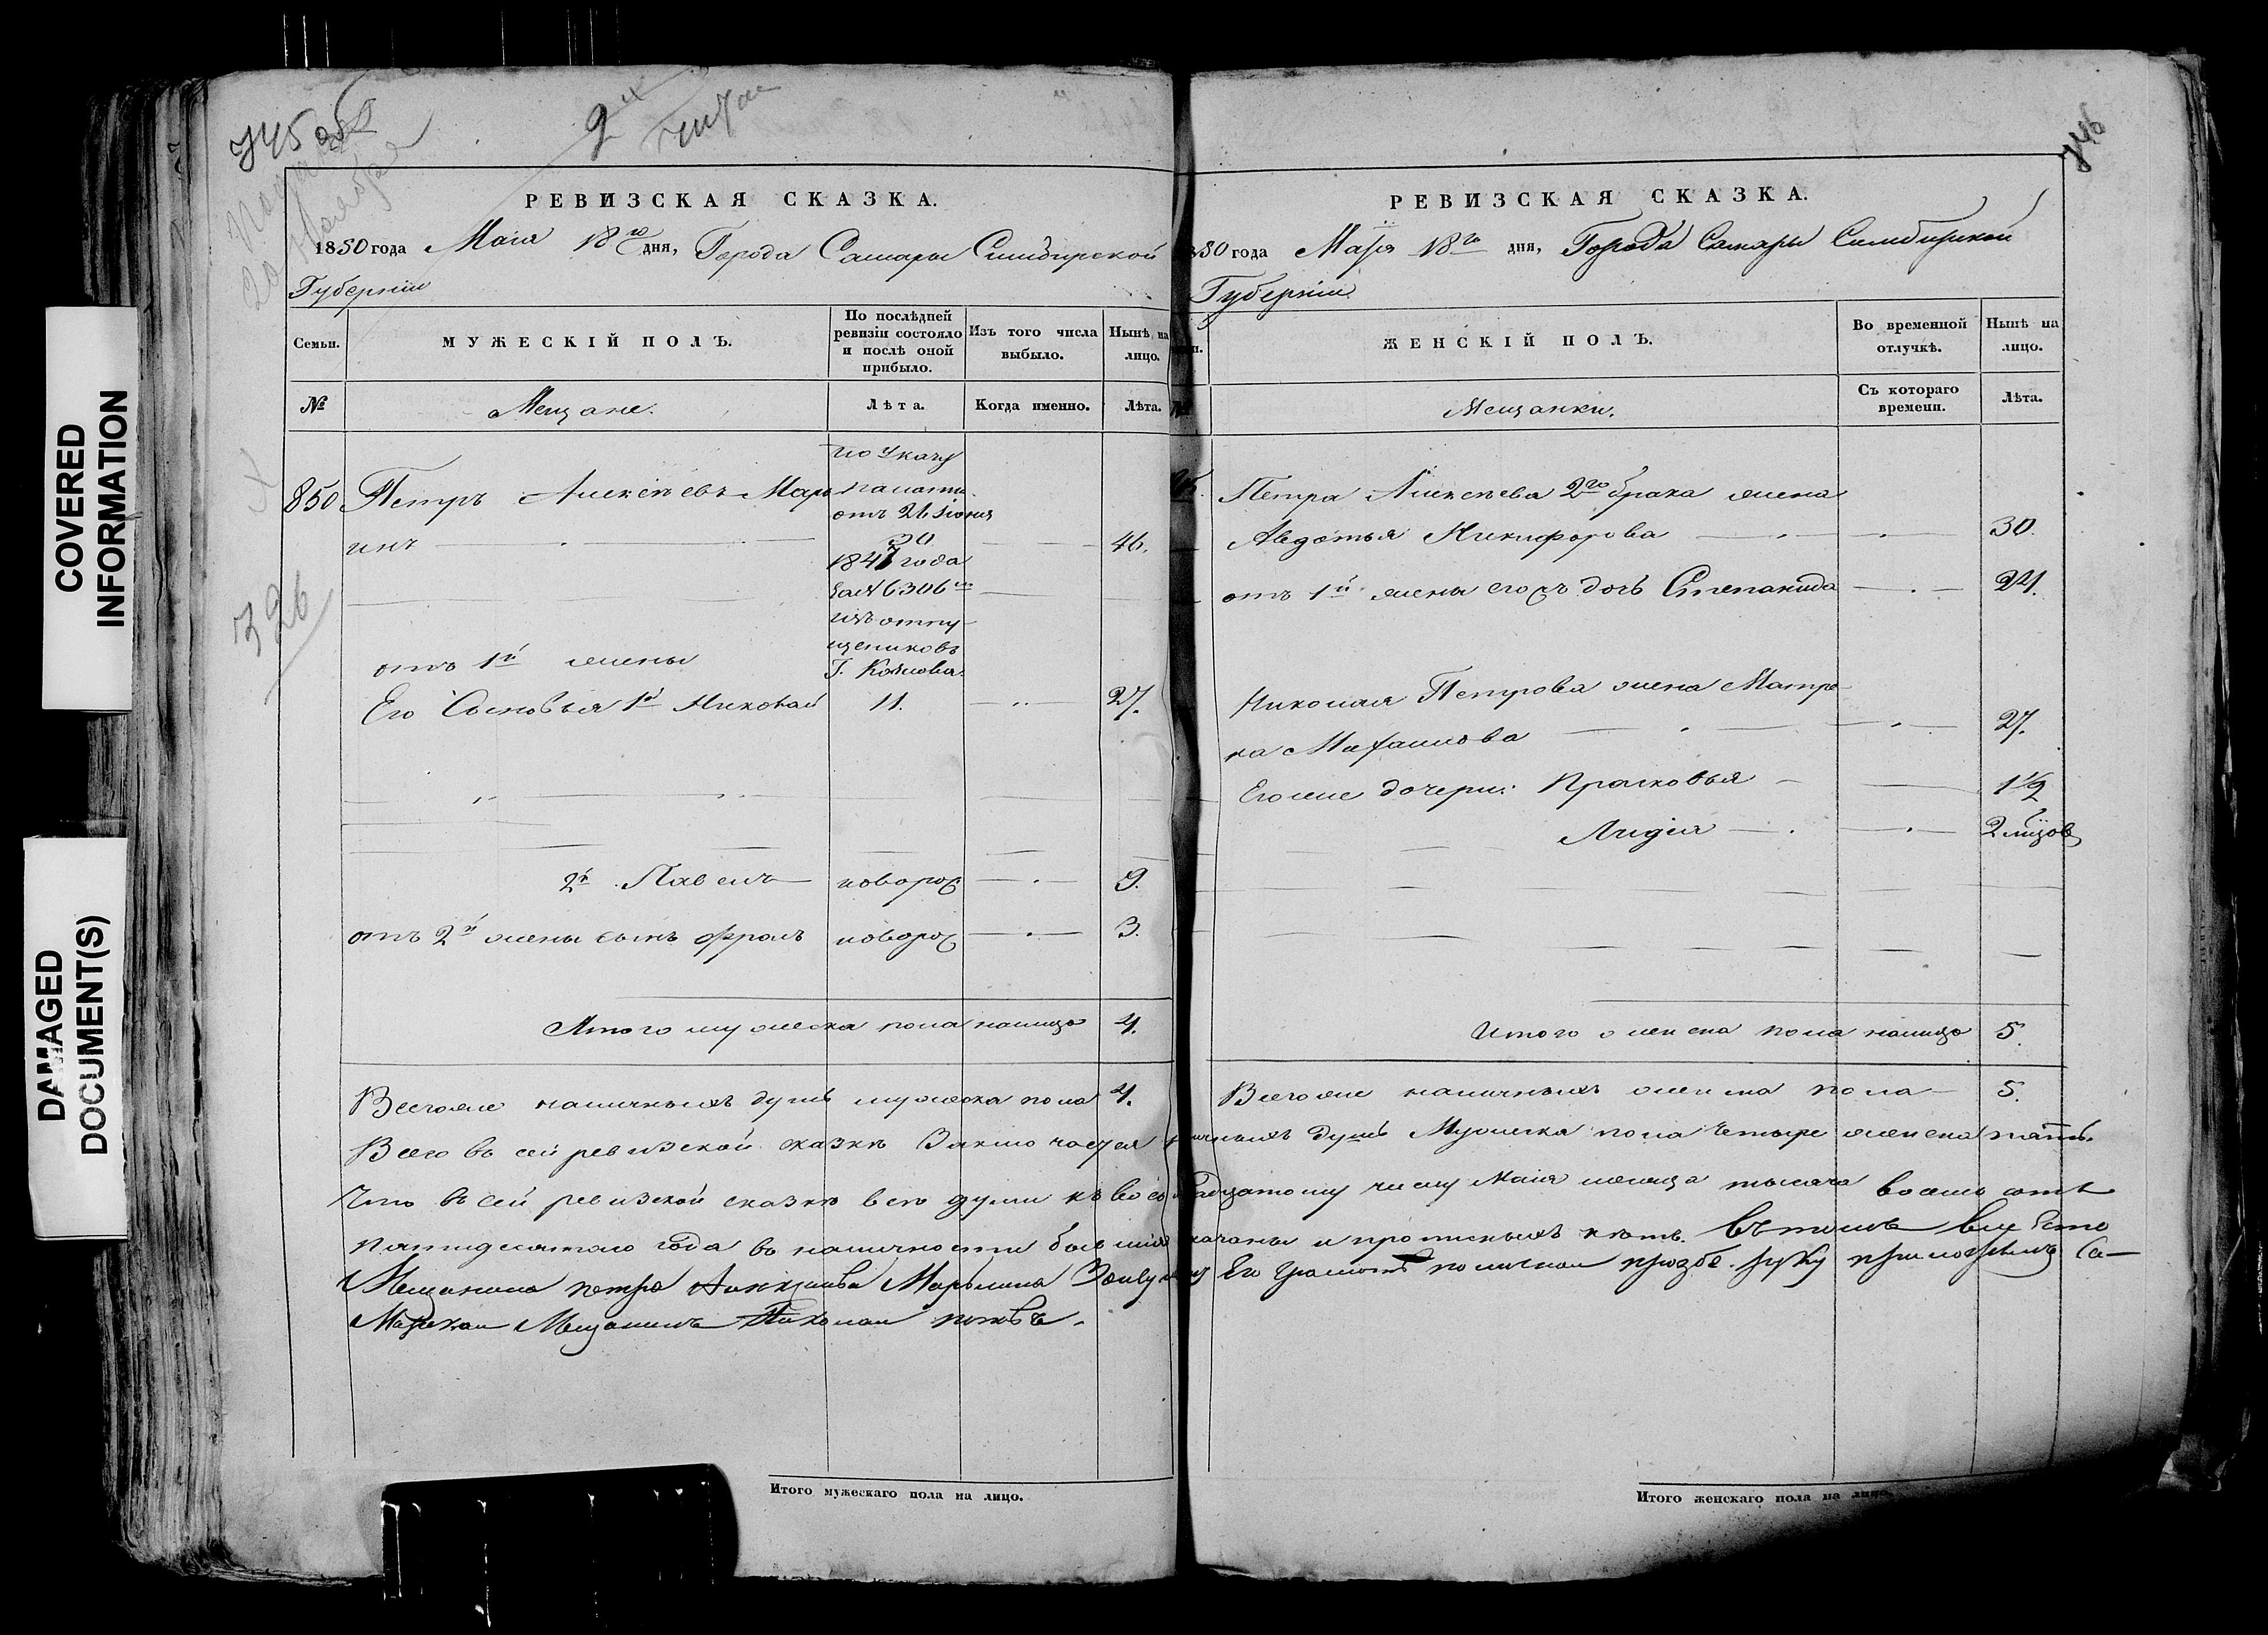 745 об
2й
746
COVERED
INFORMATION
DAMAGED
DOCUMENT(S)
РЕВИЗСКАЯ СКАЗКА.
1850 года Маія 18го дня, Города Самары Симбирской
Губерніи
Семьи.
МУЖЕСКІЙ ПОЛЪ.
По послѣдней
ревизіи состояло
и послѣ оной
прибыло.
Изъ того числа
выбыло.
Нынѣ на
лицо.
№
Мещане.
Лѣта.
Когда именно.
Лѣта.
850
Петръ Алексѣевъ Марь
инъ
46.
по указу
палаты
отъ 26 Іюня
30
1847 года
за № 6306м
изъ отпу
щениковъ
Г.
отъ 1й жены
Его Сыновья 1й Николай 11. 27.
2й Павелъ новорож 9.
отъ 2й жены сынъ Фролъ новорож 3.
Итого мужеска пола налицо 4.
Всего же наличныхъ душъ мужеска пола 4.
РЕВИЗСКАЯ СКАЗКА.
1850 года Маія 18го дня, Города Самары Симбирской
Губерніи
ЖЕНСКІЙ ПОЛЪ.
Во временной
отлучкѣ.
Нынѣ на
лицо.
Мещанки.
Съ котораго
времени.
Лѣта.
Петра Алексѣева 2го брака жена
Авдотья Никифорова 30.
отъ 1й жены его дочь Степанида 21.
Николая Петрова жена Матре
на Михайлова 27.
Его же дочери: Прасковья 1 1/2
Лидія 2 мѣсов
Итого женска пола налицо 5.
Всего же наличныхъ женска пола 5.
Всего въ сей ревизской сказкѣ Заключается наличныхъ душъ Мужеска пола четыре женска пять.
Что въ сей ревизской сказкѣ всѣ души къ восемнадцатому числу Маія месяца тысяча восемь сотъ
пятидесятаго года въ наличности бывшія показаны и прописныхъ нѣтъ. Въ томъ вместо
Мещанина петра Алексеива Марьина За Его прозбе руку приложилъ Са-
Марскай Мещанинъ Николай
Итого мужескаго пола на лицо.
Итого женскаго пола на лицо.